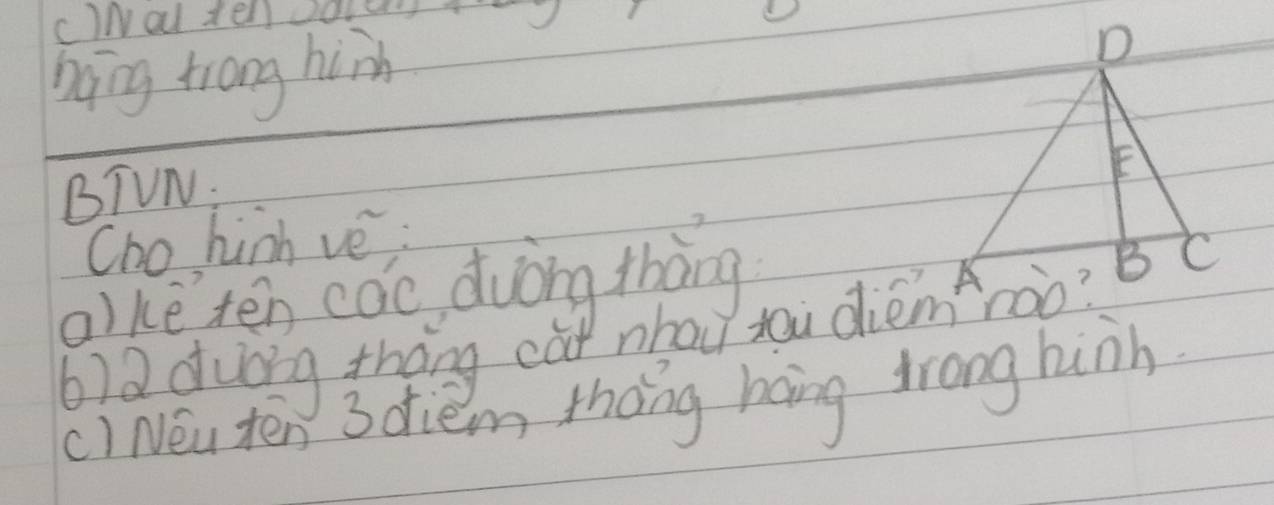 hàng trong hình
D
BTVN:
E
Cho hình vẽ:
A B C
a) Kể tên các đường thẳng.
b) 2 đường thẳng cắt nhau tại điểm nào?
c) Nêu tên 3 điểm thẳng hàng trong hình.